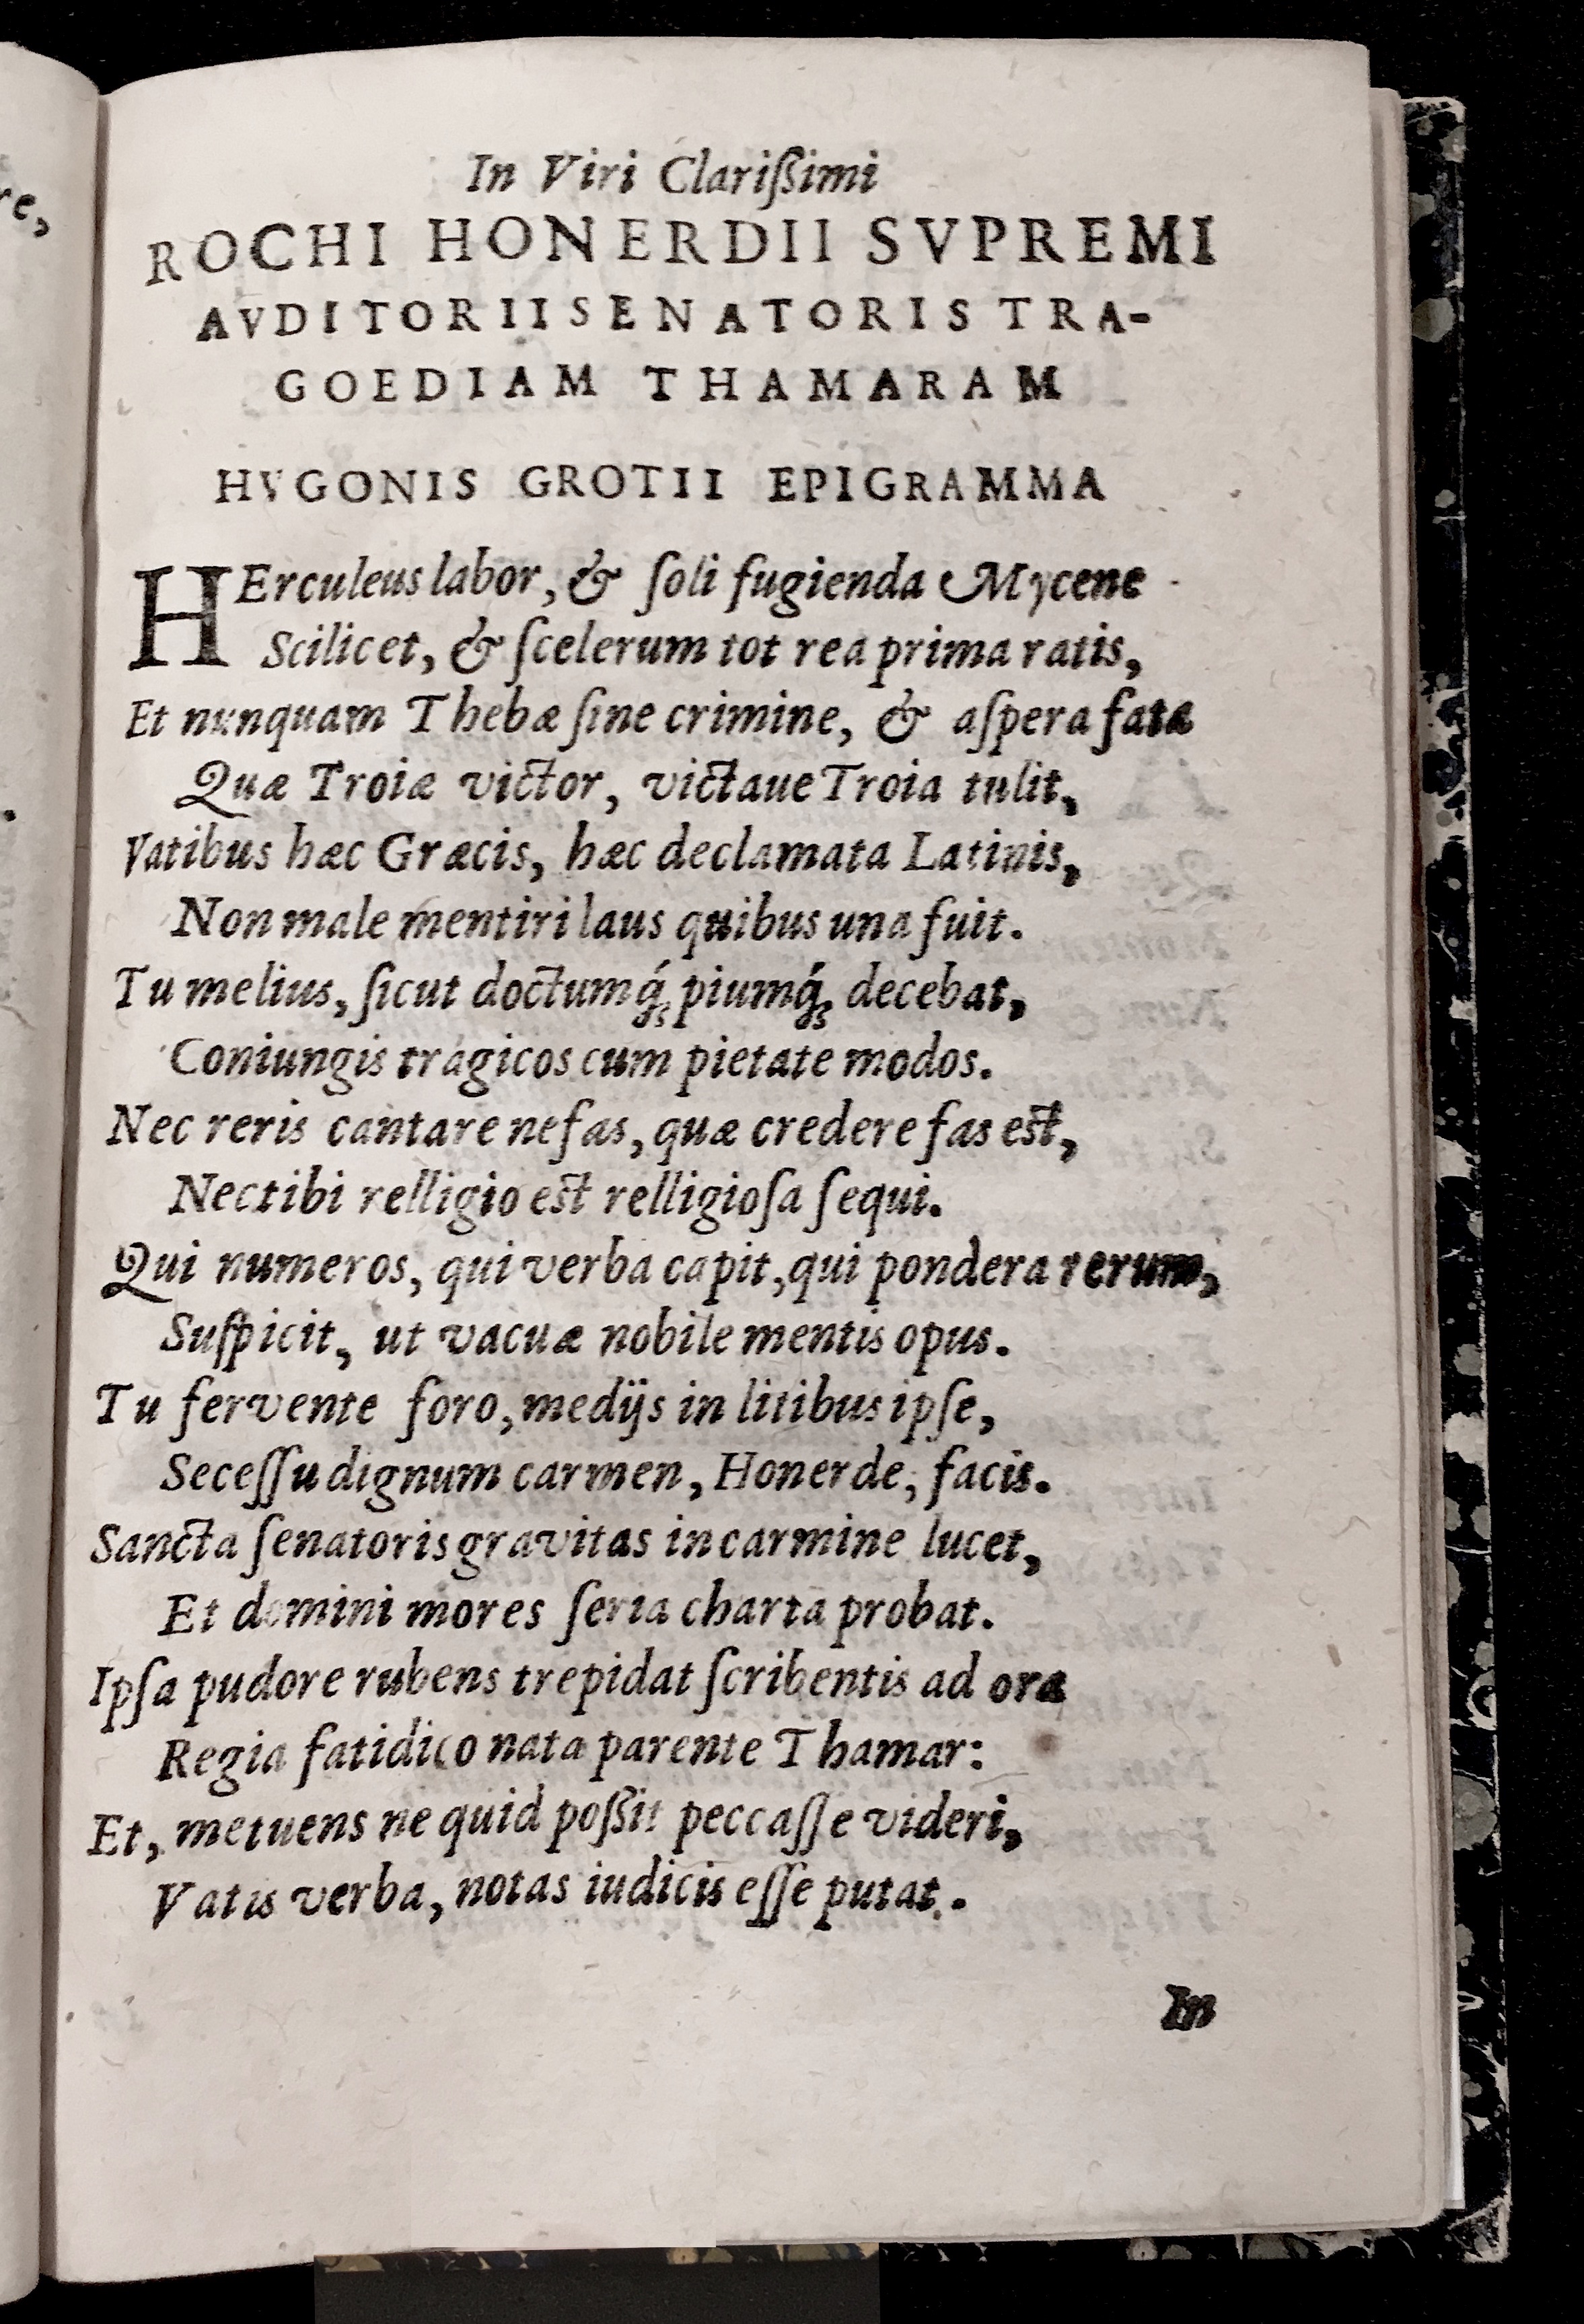 re,
In Viri Clarißimi
ROCHI HONERDII SVPREMI
AVDITORII SENATORIS TRA-
GOEDIAM THAMARAM
HVGONIS GROTII EPIGRAMMA
HErculeus labor, & ſoli fugienda Mycene
Scilicet, & ſcelerum tot rea prima ratis,
Et nunquam Thebæ ſine crimine, & aſpera fata
Quæ Troiæ victor, victaue Troia tulit,
Vatibus hæc Græcis, hæc declamata Latinis,
Non male mentiri laus quibus una fuit.
Tu melius, ſicut doctumq́; piumq́; decebat,
Coniungis tragicos cum pietate modos.
Nec reris cantare nefas, quæ credere fas est,
Nec tibi relligio est relligioſa ſequi.
Qui numeros, qui verba capit, qui pondera rerum,
Suſpicit, ut vacuæ nobile mentis opus.
Tu fervente foro, medijs in litibus ipſe,
Seceſſu dignum carmen, Honerde, facis.
Sancta ſenatoris gravitas in carmine lucet,
Et domini mores ſeria charta probat.
Ipſa pudore rubens trepidat ſcribentis ad ora
Regia fatidico nata parente Thamar:
Et, metuens ne quid poßit peccaſſe videri,
Vatis verba, notas iudicis eſſe putat.
In